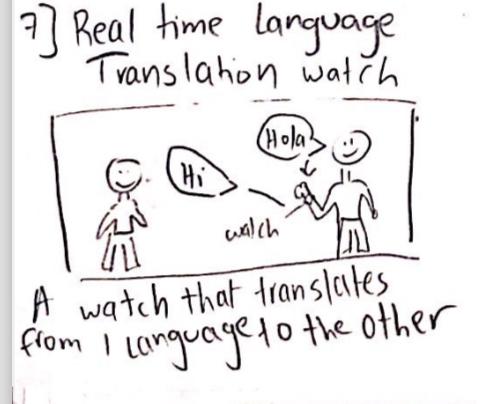 7] Real time language
Translation watch
Hola
Hi
watch
A watch that translates
from 1 language to the other